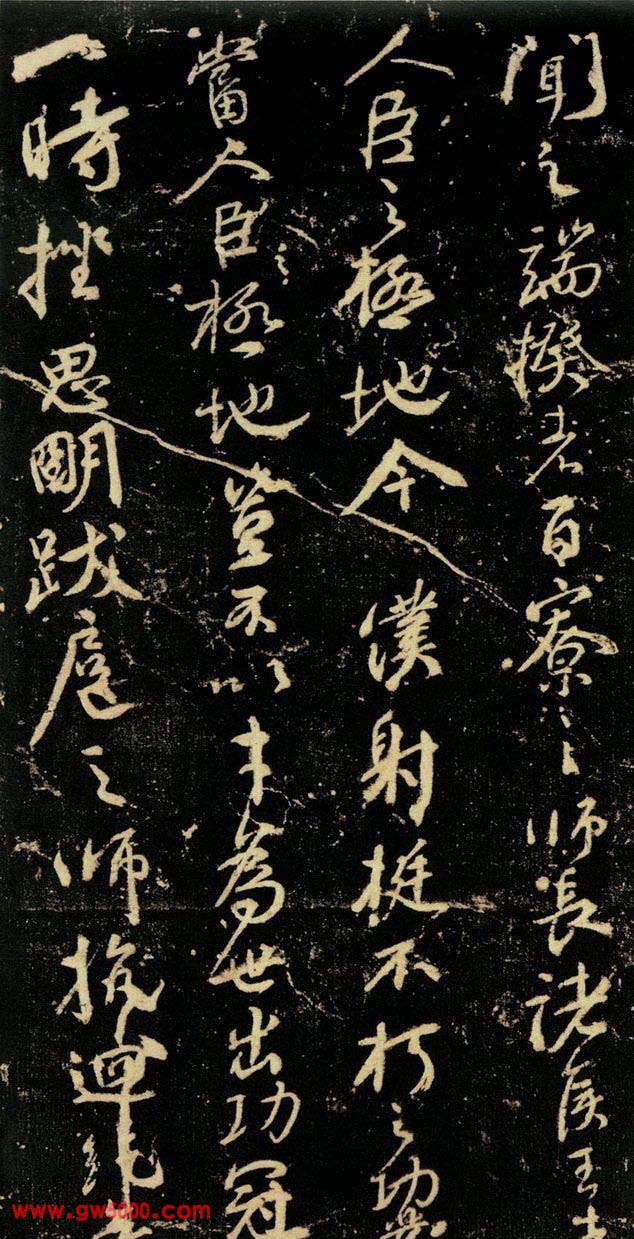 聞之端揆者百寮之師長諸侯王者
人臣之極地今僕射挺不朽之功業
當人臣之極地豈不以才為世出功冠
一時挫思明跋扈之師抗迴紇
www.gw5000.com